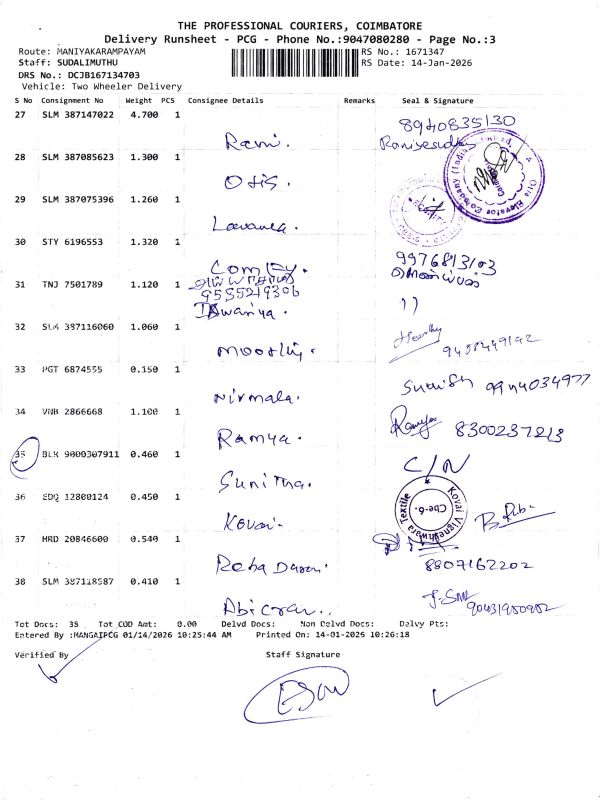 THE PROFESSIONAL COURIERS, COIMBATORE
Delivery Runsheet - PCG - Phone No.:9047080280 - Page No.:3
Route: MANIYAKARAMPAYAM RS No.: 1671347
Staff: SUDALIMUTHU RS Date: 14-Jan-2026
DRS No.: DCJB167134703
Vehicle: Two Wheeler Delivery
S No Consignment No Weight PCS Consignee Details Remarks Seal & Signature
27 SLM 387147022 4.700 1
8940835130
Rani.
28 SLM 387085623 1.300 1
Otis.
Otis Elevator Company (India) Limited,
29 SLM 387075396 1.260 1
Lavanea.
30 STY 6196553 1.320 1
9976813103
31 TNJ 7501789 1.120 1
9555219306
Iswariya.
32 SLM 387116060 1.060 1
Moorthy.
9438449142
33 PGT 6874555 0.150 1
Nirmala.
9944034977
34 VNB 2866668 1.100 1
Ramya.
Ramya 8300237213
35 BLR 9000307911 0.460 1
Sunitha.
C/N
36 EDQ 12800124 0.450 1
Kovai.
Kovai Vigneshwara Textile
Cbe-6.
37 HRD 20846600 0.540 1
8807162202
38 SLM 387128587 0.410 1
Tot Docs: 38 Tot COD Amt: 0.00 Delvd Docs: Non Delvd Docs: Delvy Pts:
Entered By :MANGAIPCG 01/14/2026 10:25:44 AM Printed On: 14-01-2026 10:26:18
Verified By Staff Signature